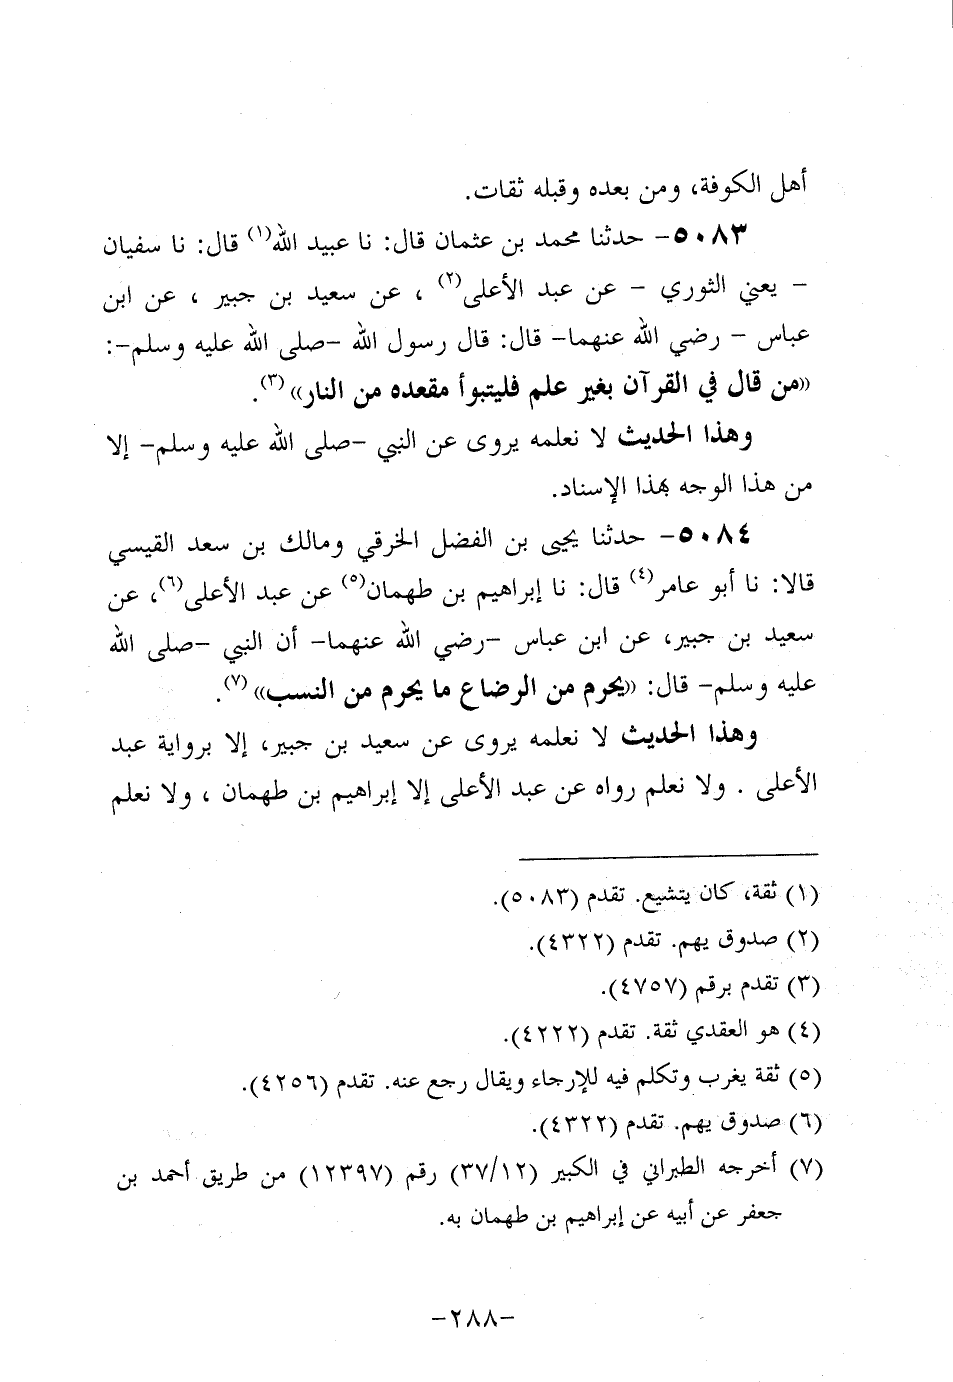 أهل الكوفة، ومن بعده وقبله ثقات.
٥٠٨٣- حدثنا محمد بن عثمان قال: نا عبيد الله(١) قال: نا سفيان
- يعني الثوري - عن عبد الأعلى(٢) ، عن سعيد بن جبير ، عن ابن
عباس - رضي الله عنهما- قال: قال رسول الله -صلى الله عليه وسلم-:
«من قال في القرآن بغير علم فليتبوأ مقعده من النار»(٣).
وهذا الحديث لا نعلمه يروى عن النبي -صلى الله عليه وسلم- إلا
من هذا الوجه بهذا الإسناد.
٥٠٨٤- حدثنا يحيى بن الفضل الخرقي ومالك بن سعد القيسي
قالا: نا أبو عامر(٤) قال: نا إبراهيم بن طهمان(٥) عن عبد الأعلى(٦)، عن
سعيد بن جبير، عن ابن عباس -رضي الله عنهما- أن النبي -صلى الله
عليه وسلم- قال: «يحرم من الرضاع ما يحرم من النسب»(٧).
وهذا الحديث لا نعلمه يروى عن سعيد بن جبير، إلا برواية عبد
الأعلى . ولا نعلم رواه عن عبد الأعلى إلا إبراهيم بن طهمان ، ولا نعلم
(١) ثقة، كان يتشيع. تقدم (٥٠٨٣).
(٢) صدوق يهم. تقدم (٤٣٢٢).
(٣) تقدم برقم (٤٧٥٧).
(٤) هو العقدي ثقة. تقدم (٤٢٢٢).
(٥) ثقة يغرب وتكلم فيه للإرجاء ويقال رجع عنه. تقدم (٤٢٥٦).
(٦) صدوق يهم. تقدم (٤٣٢٢).
(٧) أخرجه الطبراني في الكبير (٣٧/١٢) رقم (١٢٣٩٧) من طريق أحمد بن
جعفر عن أبيه عن إبراهيم بن طهمان به.
-٢٨٨-